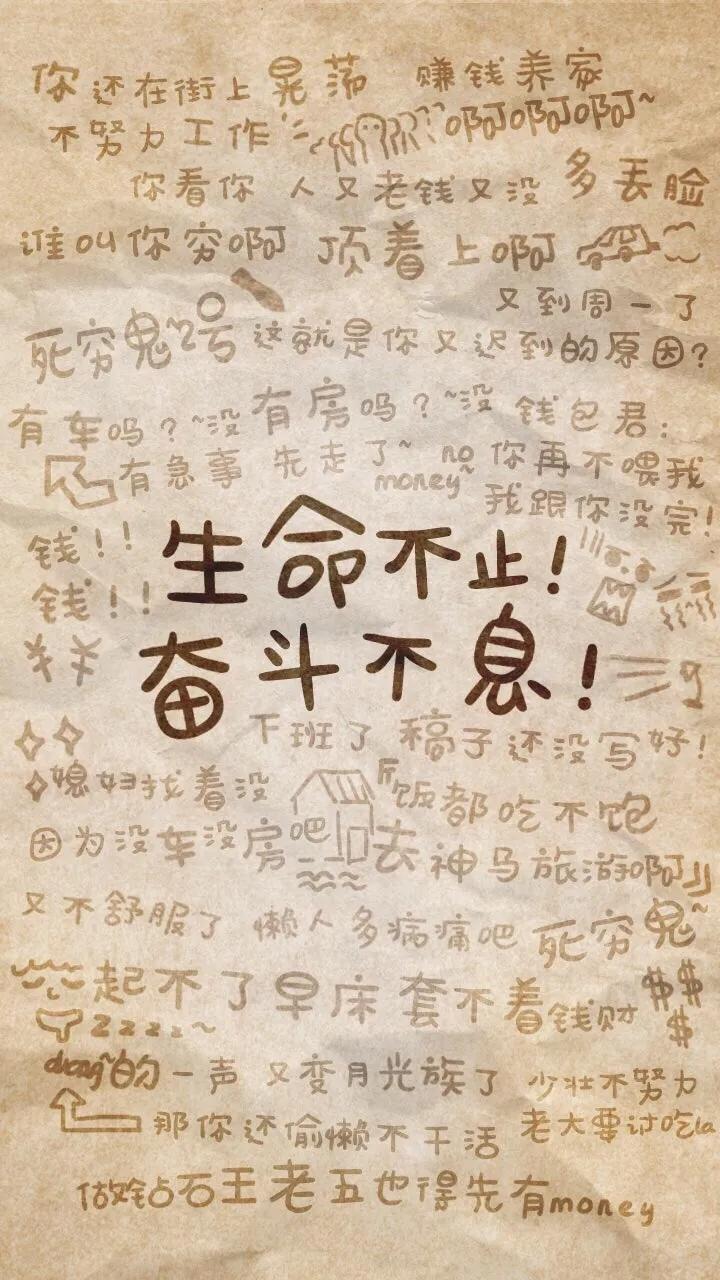 你还在街上晃荡 赚钱养家
不努力工作 啊啊啊~
你看你 人又老钱又没 多丢脸
谁叫你穷啊 顶着上啊
又到周一了
死穷鬼~2号 这就是你又迟到的原因?
有车吗?~没 有房吗?~没 钱包君:
有急事 先走了~ no money~ 你再不喂我
我跟你没完!
钱!!
生命不止!
钱!!
奋斗不息!
¥¥
下班了 稿子还没写好!
媳妇找着没
饭都吃不饱
因为没车没房吧 去神马旅游啊
又不舒服了 懒人多病痛吧 死穷鬼~
起不了早床 套不着钱财 $$$
zzzz~
duang~的一声 又变月光族了 少壮不努力
那你还偷懒不干活 老大要讨吃la
做钻石王老五也得先有money